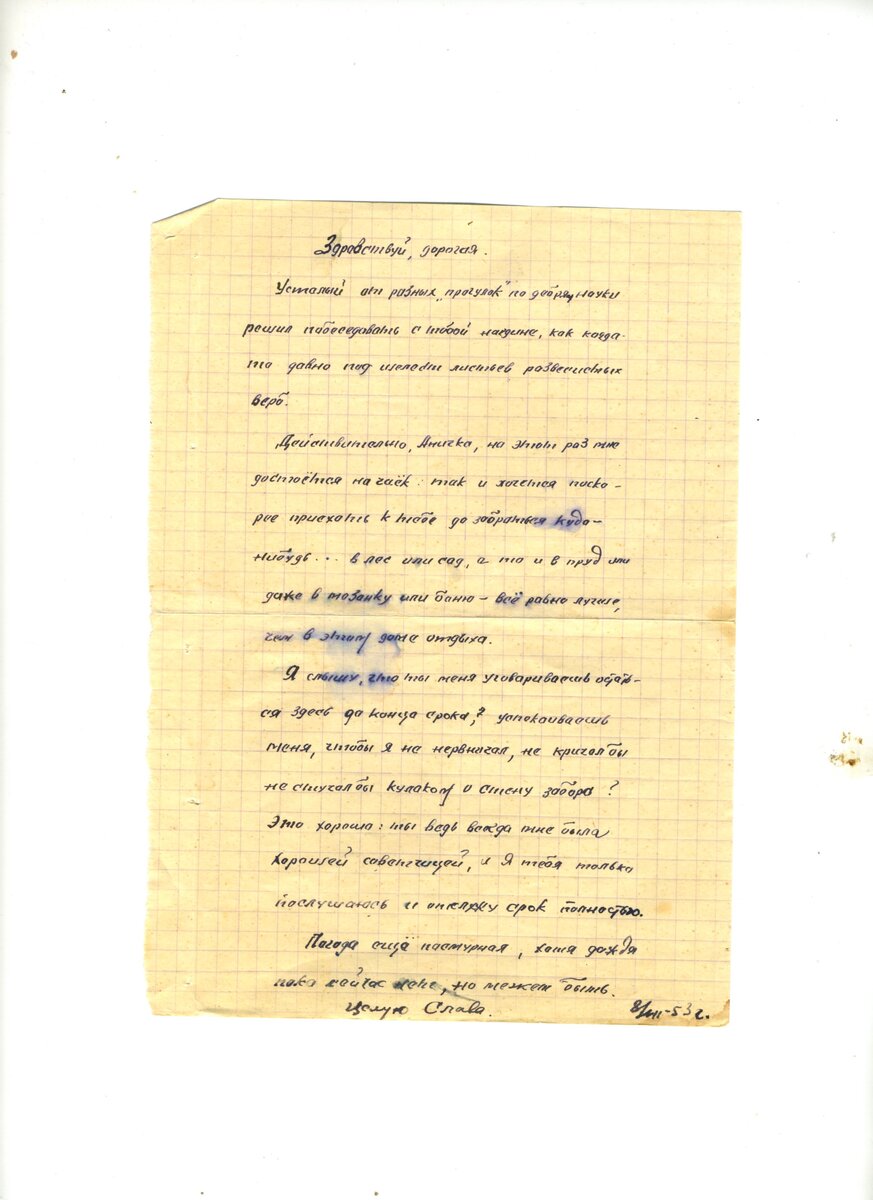 Здравствуй, дорогая.
Усталый от разных „прогулок" по дебрям науки
решил побеседовать с тобой наедине, как когда-
то давно под шелест листьев развесистых
верб.
Действительно, Аничка, на этот раз мне
достоётся на чаёк: так и хочется поско-
рее приехать к тебе да забраться куда-
нибудь... в лес или сад, а то и в пруд или
даже в или баню – всё равно лучше,
чем в этом доме отдыха.
Я слышу, что ты меня уговариваешь остать-
ся здесь до конца срока,? успокаиваешь
меня, чтобы я не нервничал, не кричал бы
не стучал бы кулаком о стену забора?
Это хорошо: ты ведь всегда мне была
хорошей советчицей, и Я тебя только
послушаюсь и отсижу срок полностью.
Погода ещё пасмурная, хотя дождя
пока сейчас нет, но может быть.
Целую Слава. 8/VIII-53 г.